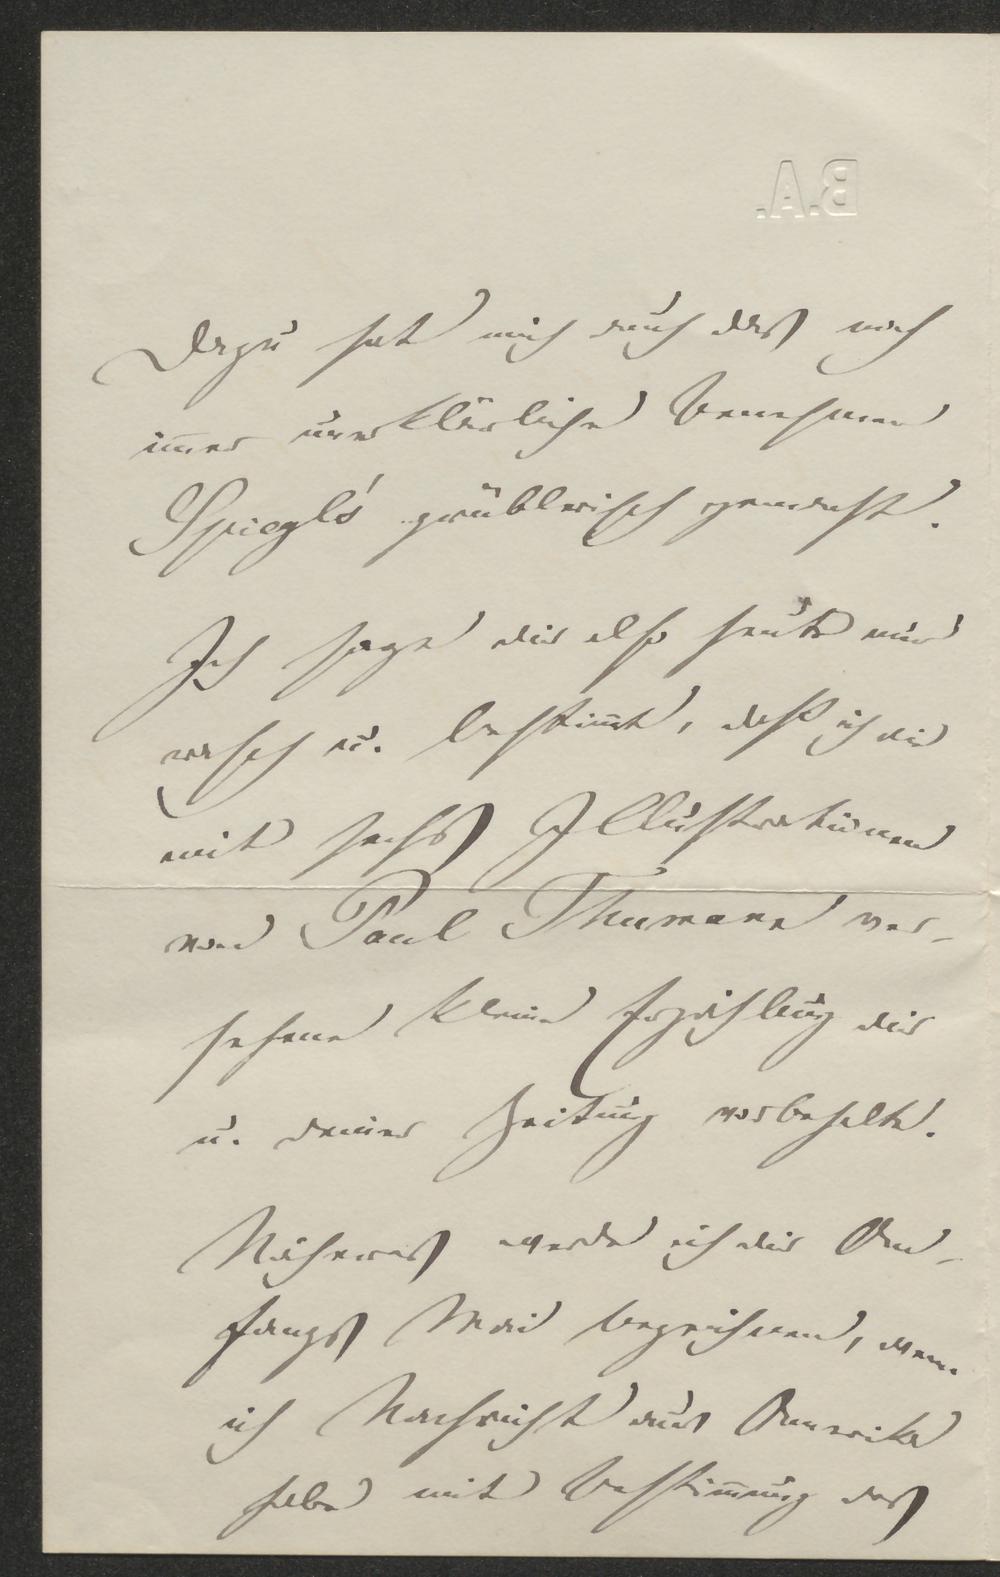 B.A.
Dazu hat mich auch das noch
im̅er unerklärliche Benehmen
Spiegl's grüblerisch gemacht.
Ich sage dir also heute nur
rasch u. bestim̅t, daß ich die
mit sechs Illustrationen
von Paul Thumann ver-
sehene kleine Erzählung dir
u. deiner Zeitung vorbehalte.
Näheres werde ich dir An-
fangs Mai bezeichnen, wenn
ich Nachricht aus Amerika
habe mit Bestim̅ung des